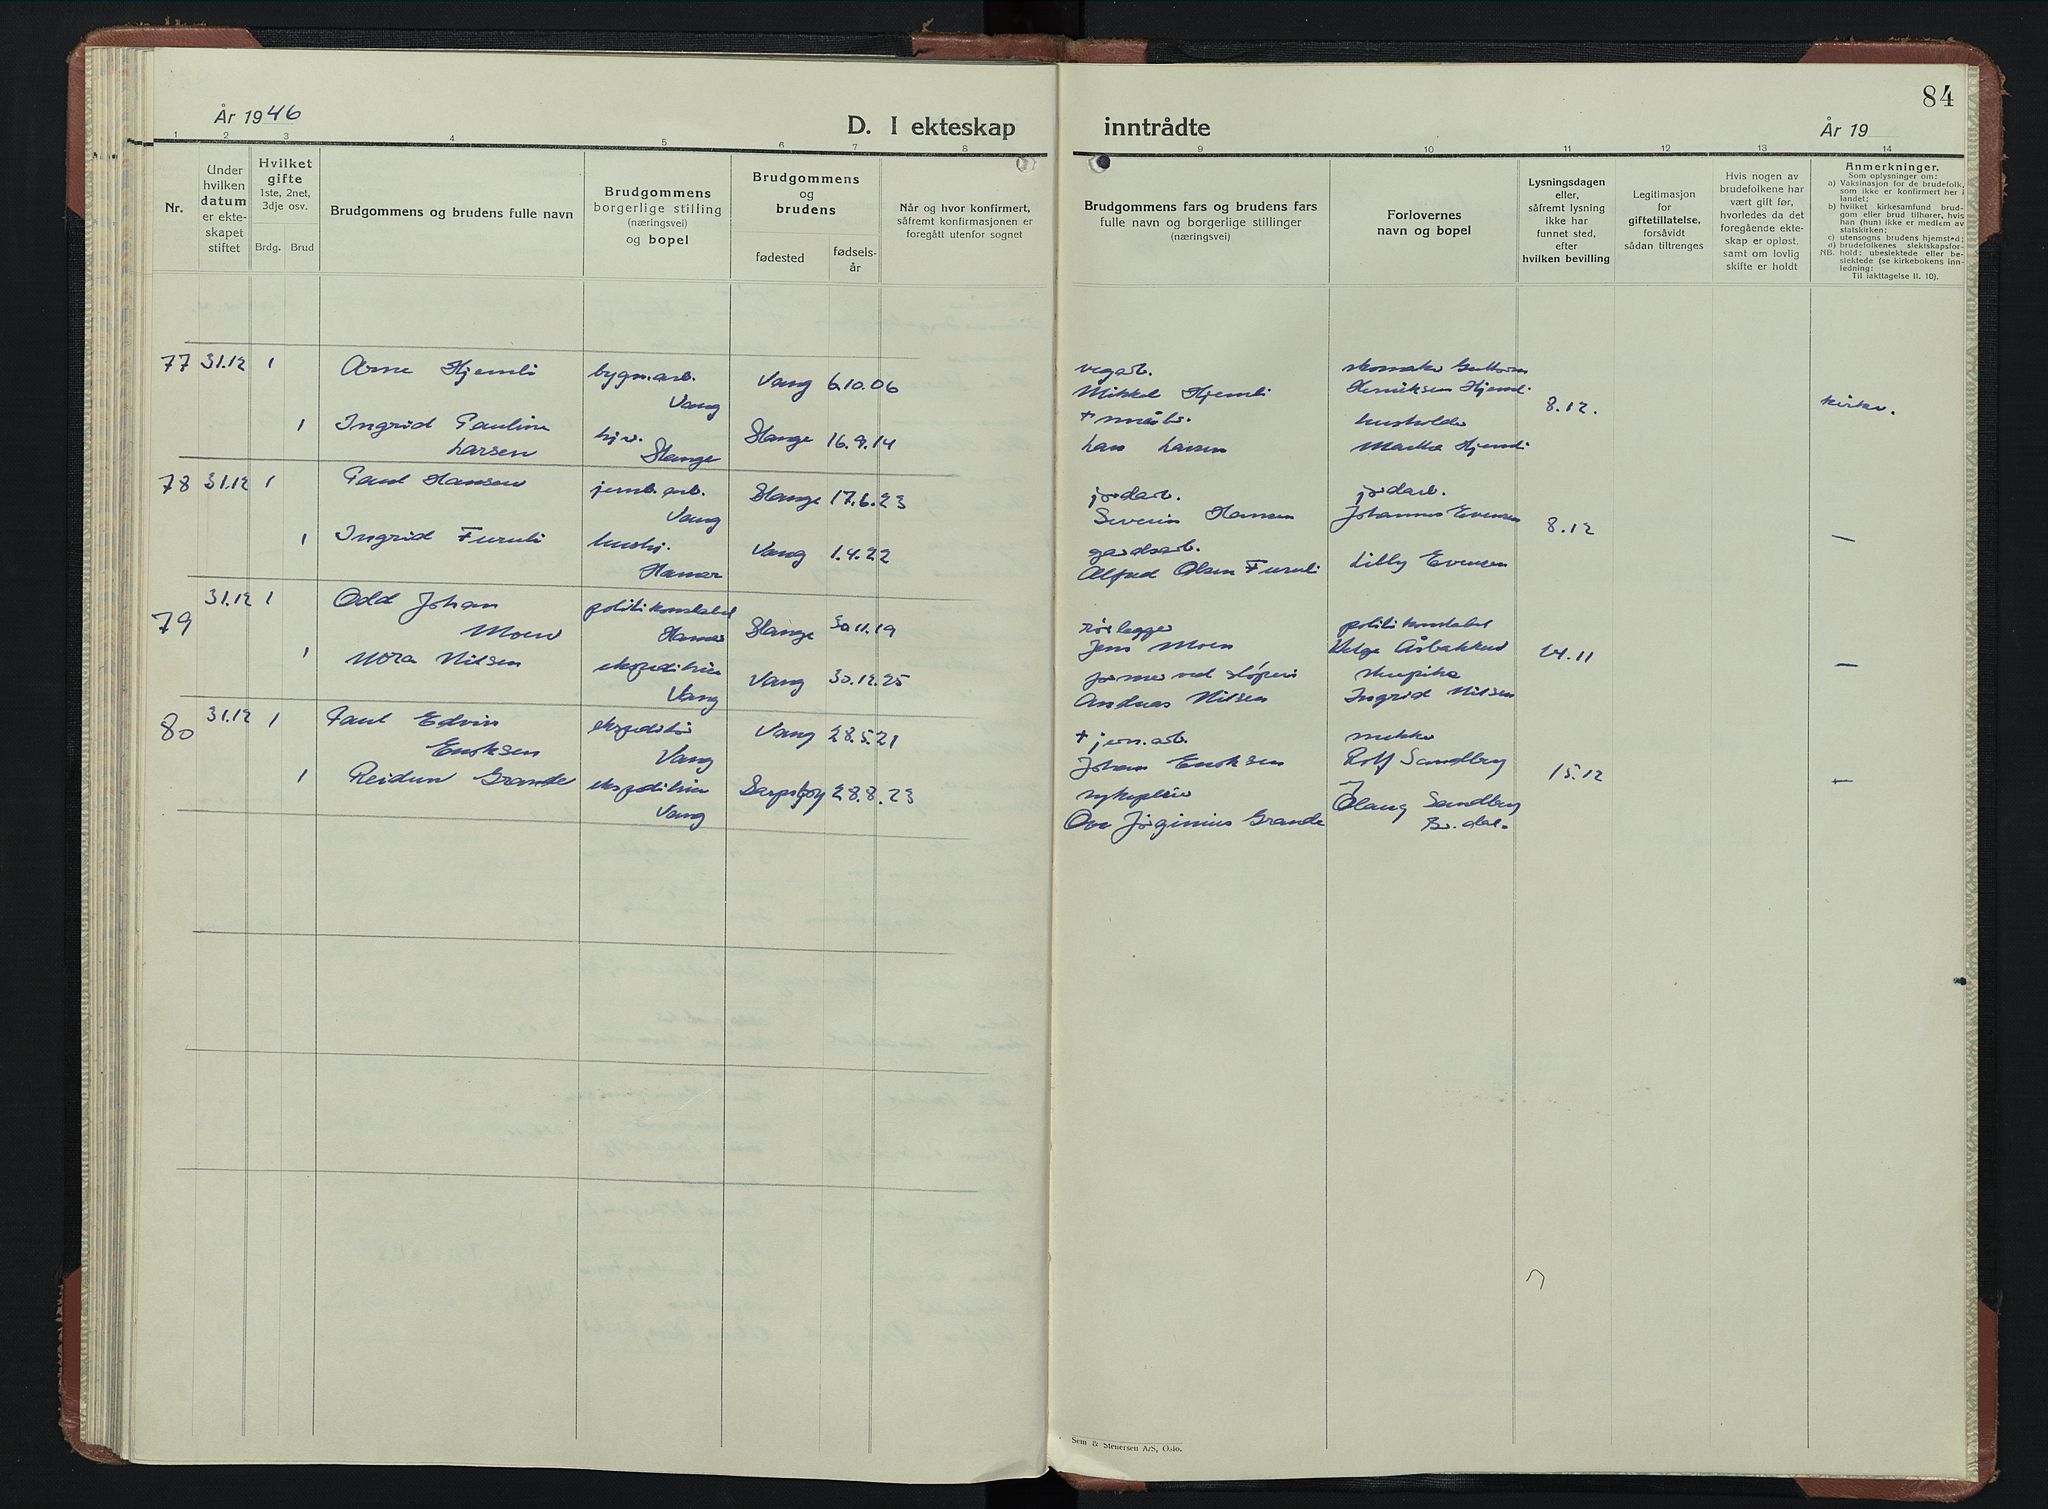 År 1946
D. I ekteskap
1 2 3 4 5 6 7 8
Nr.
Under hvilken datum er ekte- skapet stiftet
Hvilket gifte 1ste, 2net, 3dje osv.
Brdg. Brud
Brudgommens og brudens fulle navn
Brudgommens borgerlige stilling (næringsvei) og bopel
Brudgommens og brudens
fødested fødsels- år
Når og hvor konfirmert, såfremt konfirmasjonen er foregått utenfor sognet
77 31.12 1 Arne Hjemli bygn.arb. Vang Vang 6.10.06
1 Ingrid Pauline Larsen Stange Stange 16.9.14
78 31.12 1 Paul Hansen Vang Stange 17.6.23
1 Ingrid Furuli hushj. Hamar Vang 1.4.22
79 31.12 1 Odd Johan Moen politikonstabel Hamar Stange 30.11.19
1 Nora Nilsen ekspeditrise Vang Vang 30.12.25
80 31.12 1 Paul Edvin Enoksen ekspeditør Vang Vang 28.5.21
1 Reidun Grande ekspeditrise Vang Sarpsborg 28.8.23
84
inntrådte
År 19
9 10 11 12 13 14
Brudgommens fars og brudens fars fulle navn og borgerlige stillinger (næringsvei)
Forlovernes navn og bopel
Lysningsdagen eller, såfremt lysning ikke har funnet sted, efter hvilken bevilling
Legitimasjon for giftetillatelse, forsåvidt sådan tiltrenges
Hvis nogen av brudefolkene har vært gift før, hvorledes da det foregående ekte- skap er opløst, samt om lovlig skifte er holdt
Anmerkninger.
Som oplysninger om:
a) Vaksinasjon for de brudefolk, som ikke er konfirmert her i landet;
b) hvilket kirkesamfund brud- gom eller brud tilhører, hvis han (hun) ikke er medlem av statskirken;
c) utensogns brudens hjemsted;
d) brudefolkenes slektskapsfor- hold: ubeslektede eller be- slektede (se kirkebokens inn- ledning:
NB. Til iakttagelse II. 10).
vegarb. Mikkel Hjemli skomaker Guttorm Henriksen Hjemli 8.12. kirke.
+ småbr. Lars Larsen husholder Hjemli
jordarb. Severin Hansen jordarb. Johannes Evensen 8.12 —
gardsarb. Alfred Olsen Furuli Lilly Evensen
rørlegger Jens Moen politikonstabel Helge Åsbakken 24.11 —
Andreas Nilsen Ingrid Nilsen
+ jern.arb. Johan Enoksen Rolf Sandberg 15.12 —
sykepleier Ove Jørginius Grande Olaug Sandberg
Sem & Stenersen A/S, Oslo.